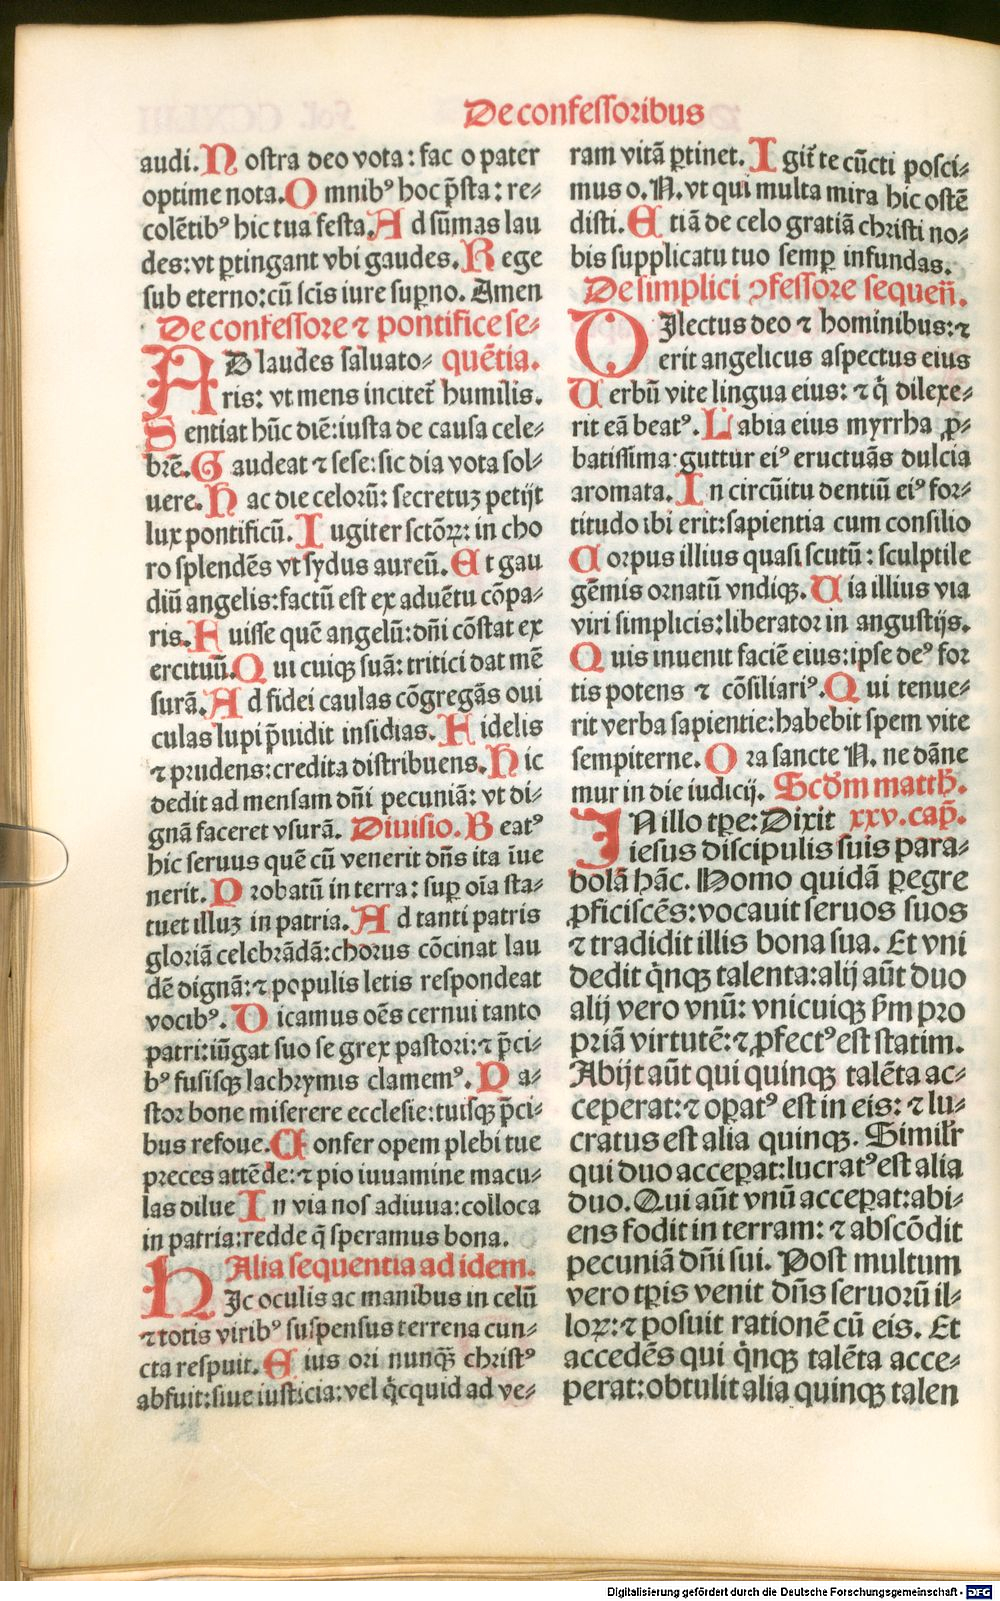 De confessoribus
audi. Nostra deo vota: fac o pater
optime nota. Omnibꝰ hoc p̄sta: re⸗
colētibꝰ hic tua festa. Ad sūmas lau
des: vt ꝑtingant vbi gaudes. Rege
sub eterno: cū scīs iure suꝑno. Amen
De confessore ⁊ pontifice se⸗
quētia.
AD laudes saluato⸗
ris: vt mens incitet᷑ humilis.
Sentiat hūc diē: iusta de causa cele⸗
brē. Gaudeat ⁊ sese: sic dia vota sol⸗
uere. Hac die celorū: secretuꝫ petijt
lux pontificū. Iugiter sctōꝝ: in cho
ro splendēs vt sydus aureū. Et gau
diū angelis: factū est ex aduētu cōpa⸗
ris. Fuisse quē angelū: dn̄i cōstat ex
ercituū. Qui cuiqꝫ suā: tritici dat mē
surā. Ad fidei caulas cōgregās oui
culas lupi p̄uidit insidias. Fidelis
⁊ prudens: credita distribuens. Hic
dedit ad mensam dn̄i pecuniā: vt di⸗
gnā faceret vsurā. Diuisio. Beatꝰ
hic seruus quē cū venerit dn̄s ita īue
nerit. Probatū in terra: suꝑ oīa sta⸗
tuet illuꝫ in patria. Ad tanti patris
gloriā celebrādā: chorus cōcinat lau
dē dignā: ⁊ populis letis respondeat
vocibꝰ. Dicamus oēs cernui tanto
patri: iūgat suo se grex pastori: ⁊ p̄ci⸗
bꝰ fusisqꝫ lachrymis clamemꝰ. Pa⸗
stor bone miserere ecclesie: tuisqꝫ p̄ci⸗
bus refoue. Confer opem plebi tue
preces attēde: ⁊ pio iuuamine macu⸗
las dilue In via nos adiuua: colloca
in patria: redde q̄ speramus bona.
Alia sequentia ad idem.
HIc oculis ac manibus in celū
⁊ totis viribꝰ suspensus terrena cun⸗
cta respuit. Eius ori nunqꝫ̄ christꝰ
abfuit: siue iusticia: vel q̇cquid ad ve⸗
ram vitā ꝑtinet. Igit᷑ te cūcti posci⸗
mus o. N. vt qui multa mira hic ostē
disti. Etiā de celo gratiā christi no⸗
bis supplicatu tuo semꝑ infundas.
De simplici ꝯfessore sequeñ.
DIlectus deo ⁊ hominibus: ⁊
erit angelicus aspectus eius
Verbū vite lingua eius: ⁊ q̇ dilexe⸗
rit eā beatꝰ. Labia eius myrrha ꝓ⸗
batissima: guttur eiꝰ eructuās dulcia
aromata. In circūitu dentiū eiꝰ for⸗
titudo ibi erit: sapientia cum consilio
Corpus illius quasi scutū: sculptile
gēmis ornatū vndiqꝫ. Via illius via
viri simplicis: liberator in angustijs.
Quis inuenit faciē eius: ipse deꝰ for
tis potens ⁊ cōsiliariꝰ. Qui tenue⸗
rit verba sapientie: habebit spem vite
sempiterne. Ora sancte N. ne dāne
mur in die iudicij. Scd̄m matth̄.
IN illo tꝑe: Dixit xxv. cap̄.
iesus discipulis suis para⸗
bolā hāc. Homo quidā ꝑegre
ꝓficiscēs: vocauit seruos suos
⁊ tradidit illis bona sua. Et vni
dedit q̇nqꝫ talenta: alij aūt duo
alij vero vnū: vnicuiqꝫ ẜm pro
priā virtutē: ⁊ ꝓfectꝰ est statim.
Abijt aūt qui quinqꝫ talēta ac⸗
ceperat: ⁊ oꝑatꝰ est in eis: ⁊ lu⸗
cratus est alia quinqꝫ. Simil̄r
qui duo acceꝑat: lucratꝰ est alia
duo. Qui aūt vnū acceꝑat: abi⸗
ens fodit in terram: ⁊ abscōdit
pecuniā dn̄i sui. Post multum
vero tꝑis venit dn̄s seruorū il⸗
loꝝ: ⁊ posuit rationē cū eis. Et
accedēs qui q̇nqꝫ talēta acce⸗
perat: obtulit alia quinqꝫ talen
Digitalisierung gefördert durch die Deutsche Forschungsgemeinschaft - DFG